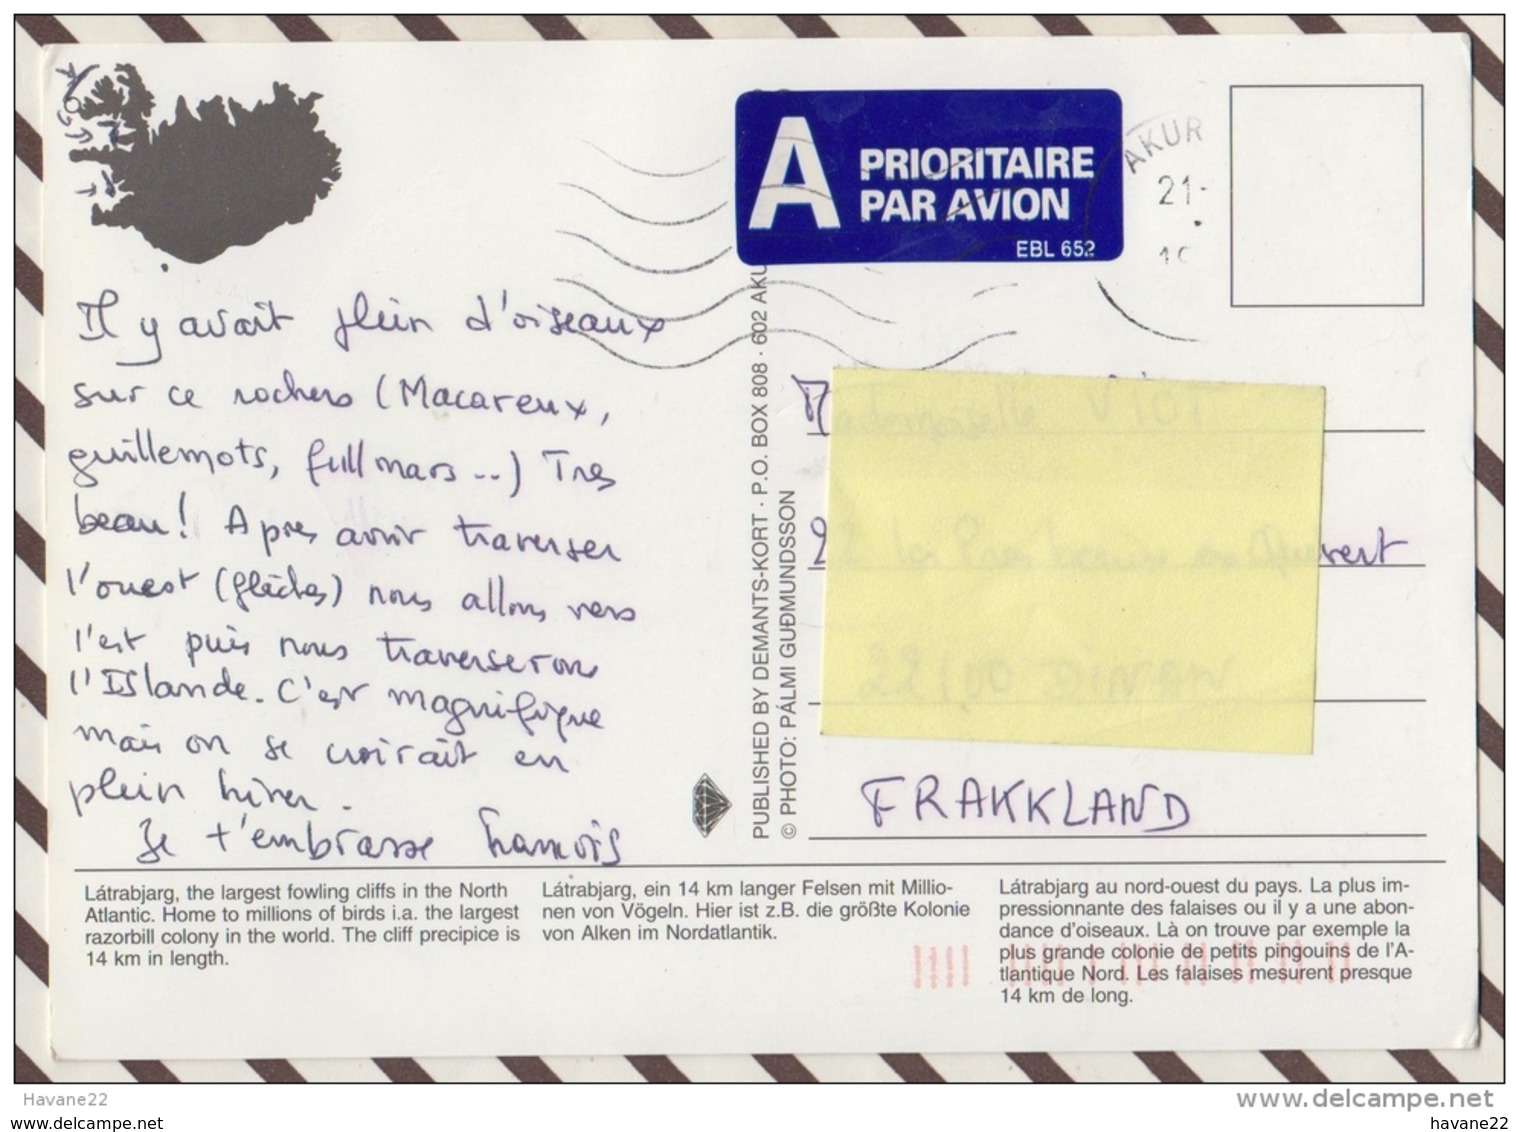 A PRIORITAIRE
PAR AVION
EBL 652
AKUR
21-
Il y avait plein d'oiseaux
sur ce rochers (Macareux,
guillemots, full mars...) Tres
beau! Apres avoir traverser
l'ouest (glâches) nous allons vers
l'est puis nous traverserons
l'Islande. C'est magnifique
mais on se croirait en
plein hiver.
Je t'embrasse François
PUBLISHED BY DEMANTS-KORT · P.O. BOX 808 · 602 AKU
© PHOTO: PÁLMI GUÐMUNDSSON
Mademoiselle VIOT
22100 DINAN
FRAKKLAND
Látrabjarg, the largest fowling cliffs in the North
Atlantic. Home to millions of birds i.a. the largest
razorbill colony in the world. The cliff precipice is
14 km in length.
Látrabjarg, ein 14 km langer Felsen mit Millio-
nen von Vögeln. Hier ist z.B. die größte Kolonie
von Alken im Nordatlantik.
Látrabjarg au nord-ouest du pays. La plus im-
pressionnante des falaises ou il y a une abon-
dance d'oiseaux. Là on trouve par exemple la
plus grande colonie de petits pingouins de l'A-
tlantique Nord. Les falaises mesurent presque
14 km de long.
Havane22
www.delcampe.net
www.delcampe.net
havane22